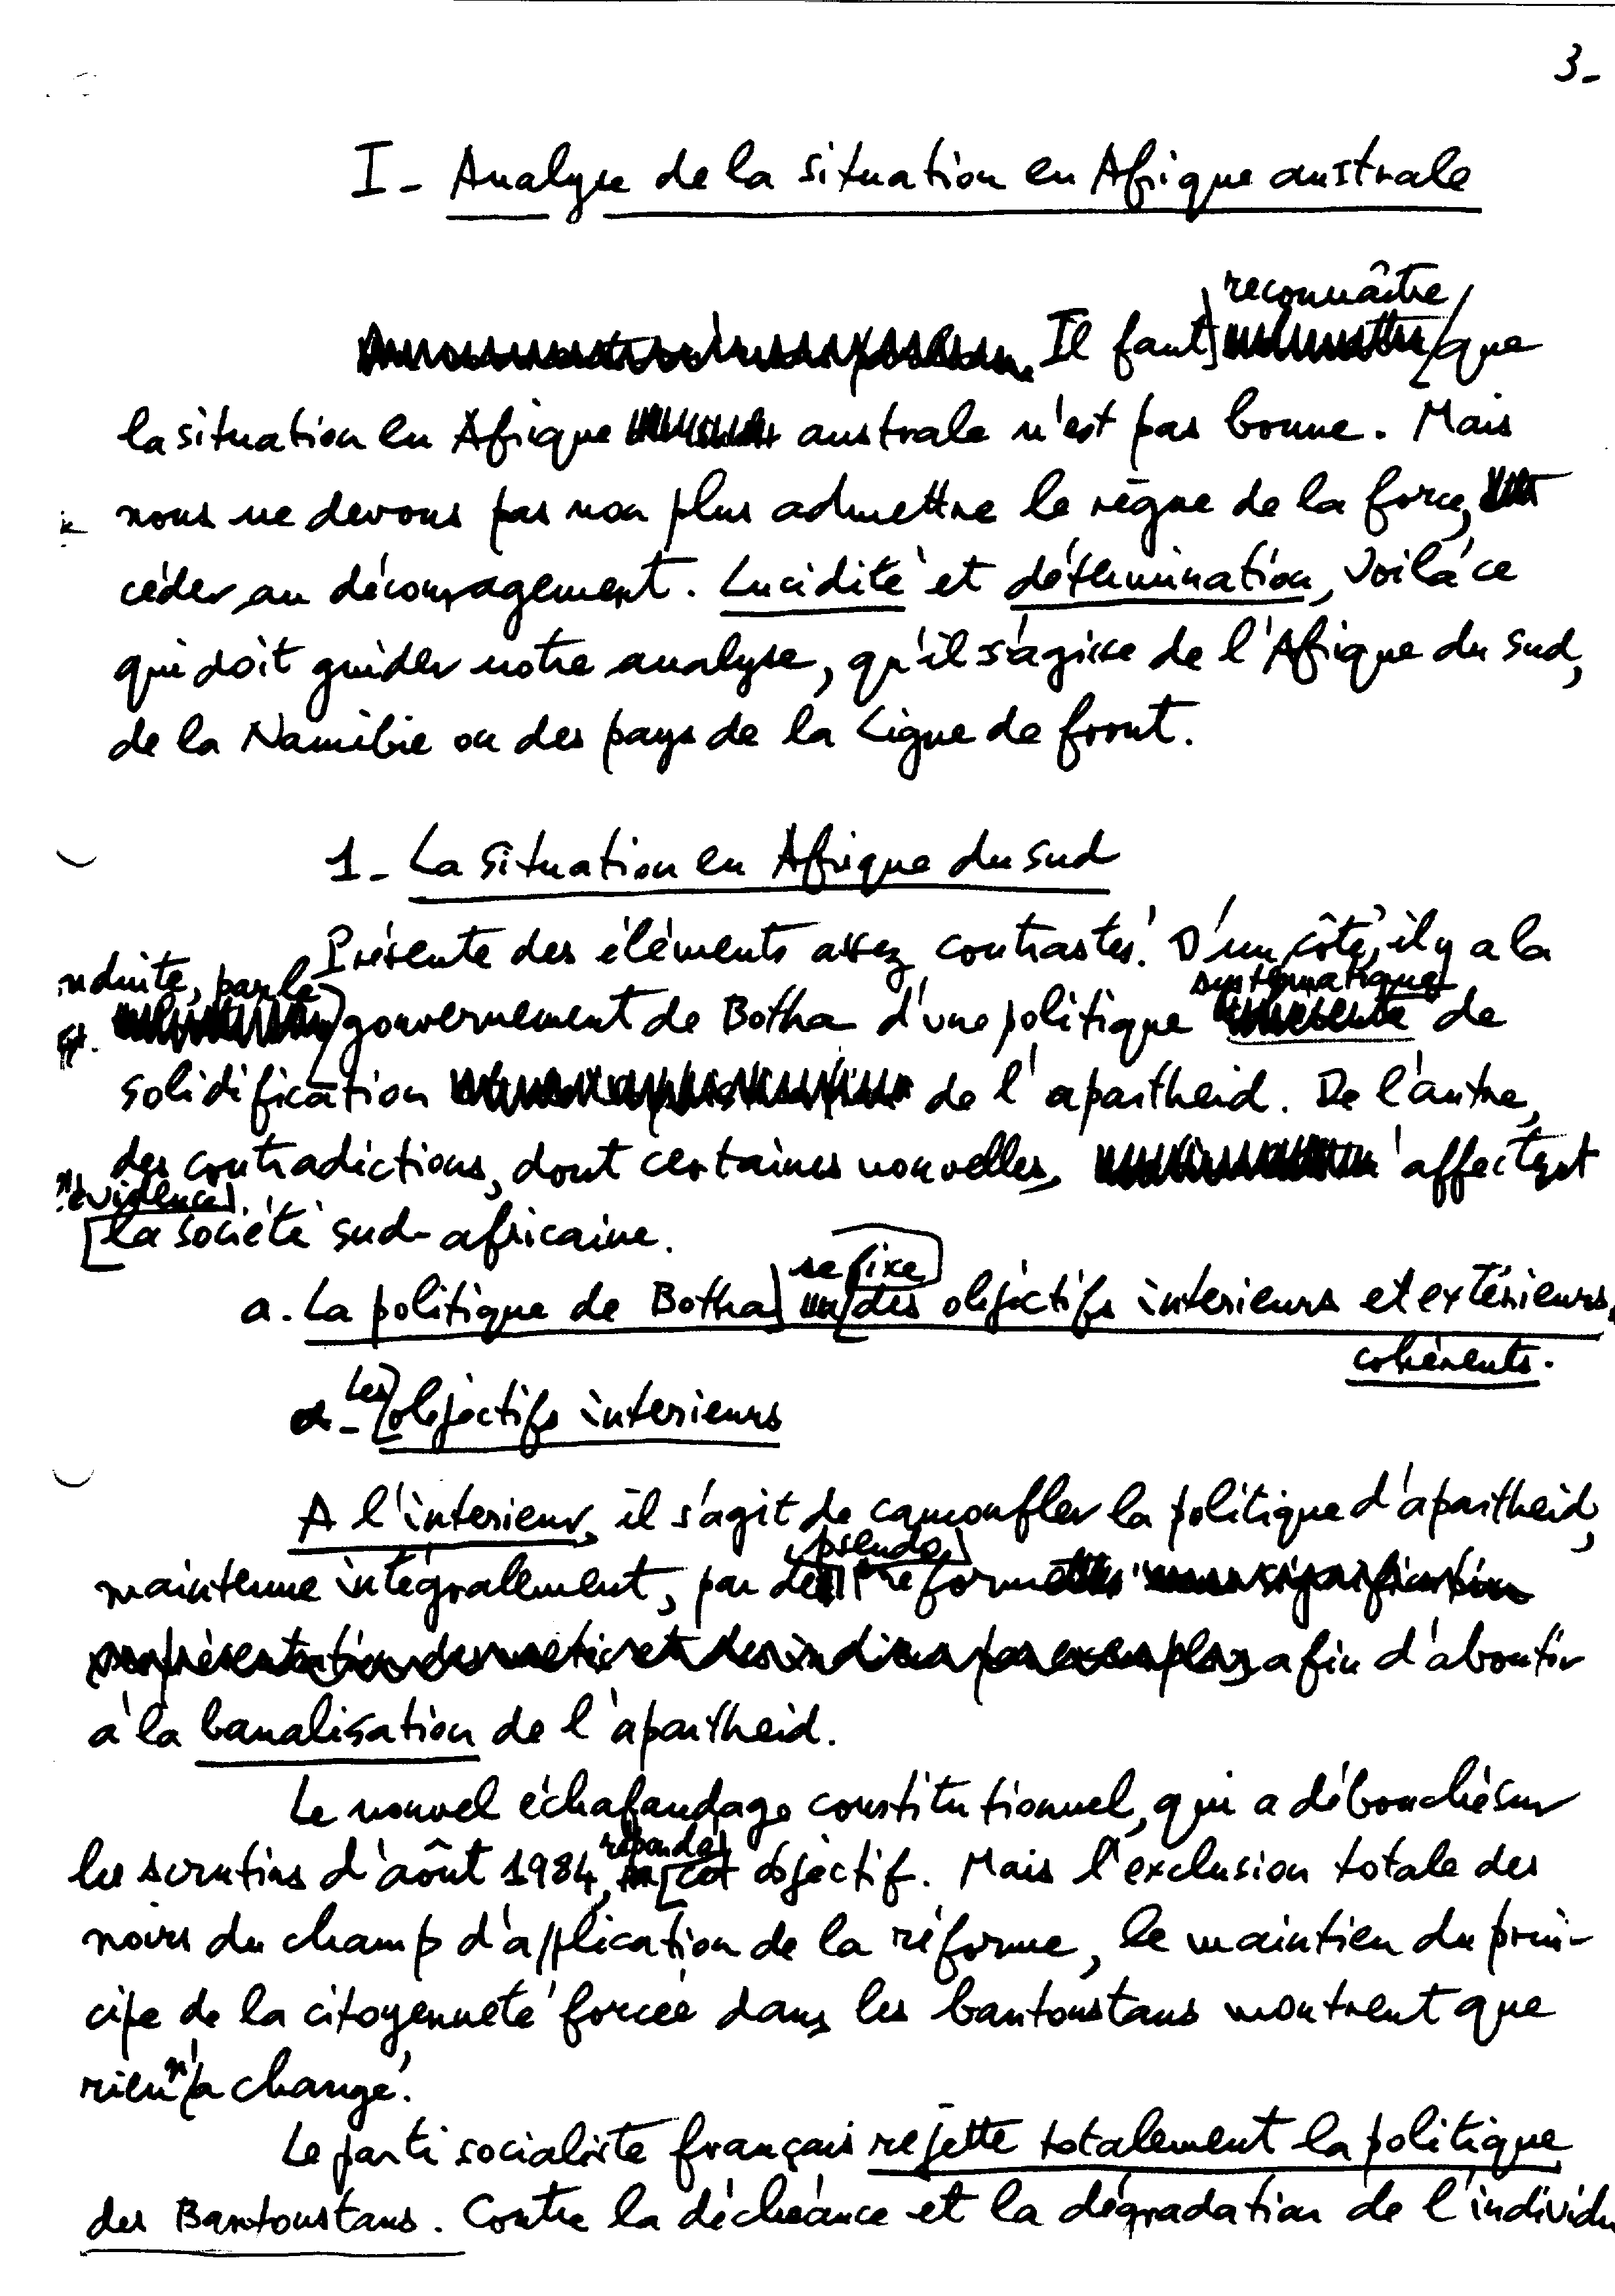 3-
I - Analyse de la situation en Afrique australe
reconnaître
Il faut que
la situation en Afrique australe n'est pas bonne. Mais
nous ne devons pas non plus admettre le règne de la force,
céder au découragement. Lucidité et détermination, voilà ce
qui doit guider notre analyse, qu'il s'agisse de l'Afrique du Sud,
de la Namibie ou des pays de la Ligne de front.
1 - La situation en Afrique du Sud
Présente des éléments assez contrastés. D'un côté, il y a la
nduite, par le systématique
gouvernement de Botha d'une politique de
solidification de l'apartheid. De l'autre,
des contradictions, dont certaines nouvelles, affectent
évidence
la société sud-africaine.
se fixe
a. La politique de Botha des objectifs intérieurs et extérieurs
cohérents.
Les
α - objectifs intérieurs
A l'intérieur, il s'agit de camoufler la politique d'apartheid,
pseudo
maintenue intégralement, par des réformes
afin d'aboutir
à la banalisation de l'apartheid.
Le nouvel échafaudage constitutionnel, qui a débouché sur
répond à
les scrutins d'août 1984, cet objectif. Mais l'exclusion totale des
noirs du champ d'application de la réforme, le maintien du prin-
cipe de la citoyenneté forcée dans les bantoustans montrent que
rien n'a changé.
Le parti socialiste français rejette totalement la politique
des Bantoustans. Contre la déchéance et la dégradation de l'individu